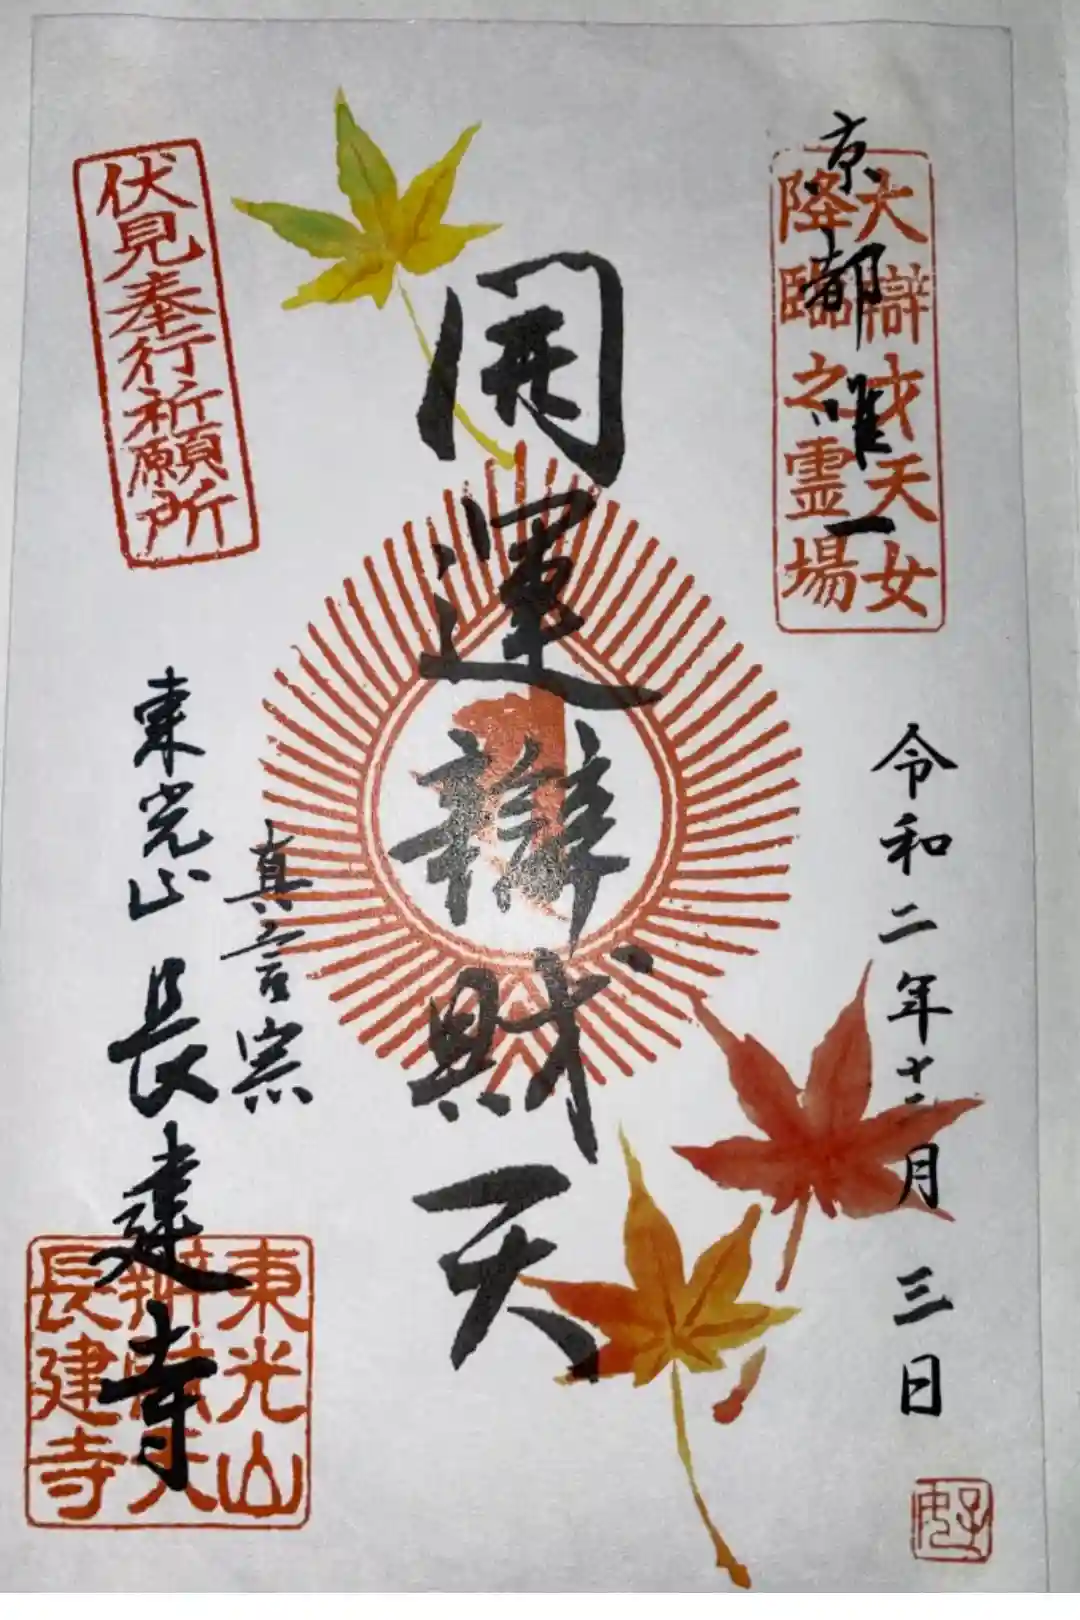 京都唯一
大辯才天女
降臨之霊場
令和二年十二月三日
開運辯財天
伏見奉行祈願所
真言宗
東光山 長建寺
東光山
辨財天
長建寺